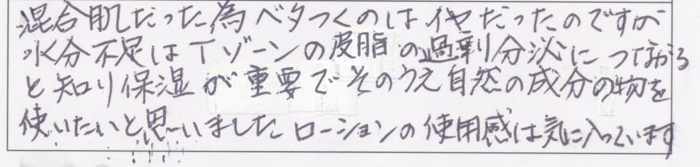 混合肌だった為ベタつくのはイヤだったのですが
水分不足はTゾーンの皮脂の過剰分泌につながる
と知り保湿が重要でそのうえ自然の成分の物を
使いたいと思いました ローションの使用感は気に入っています